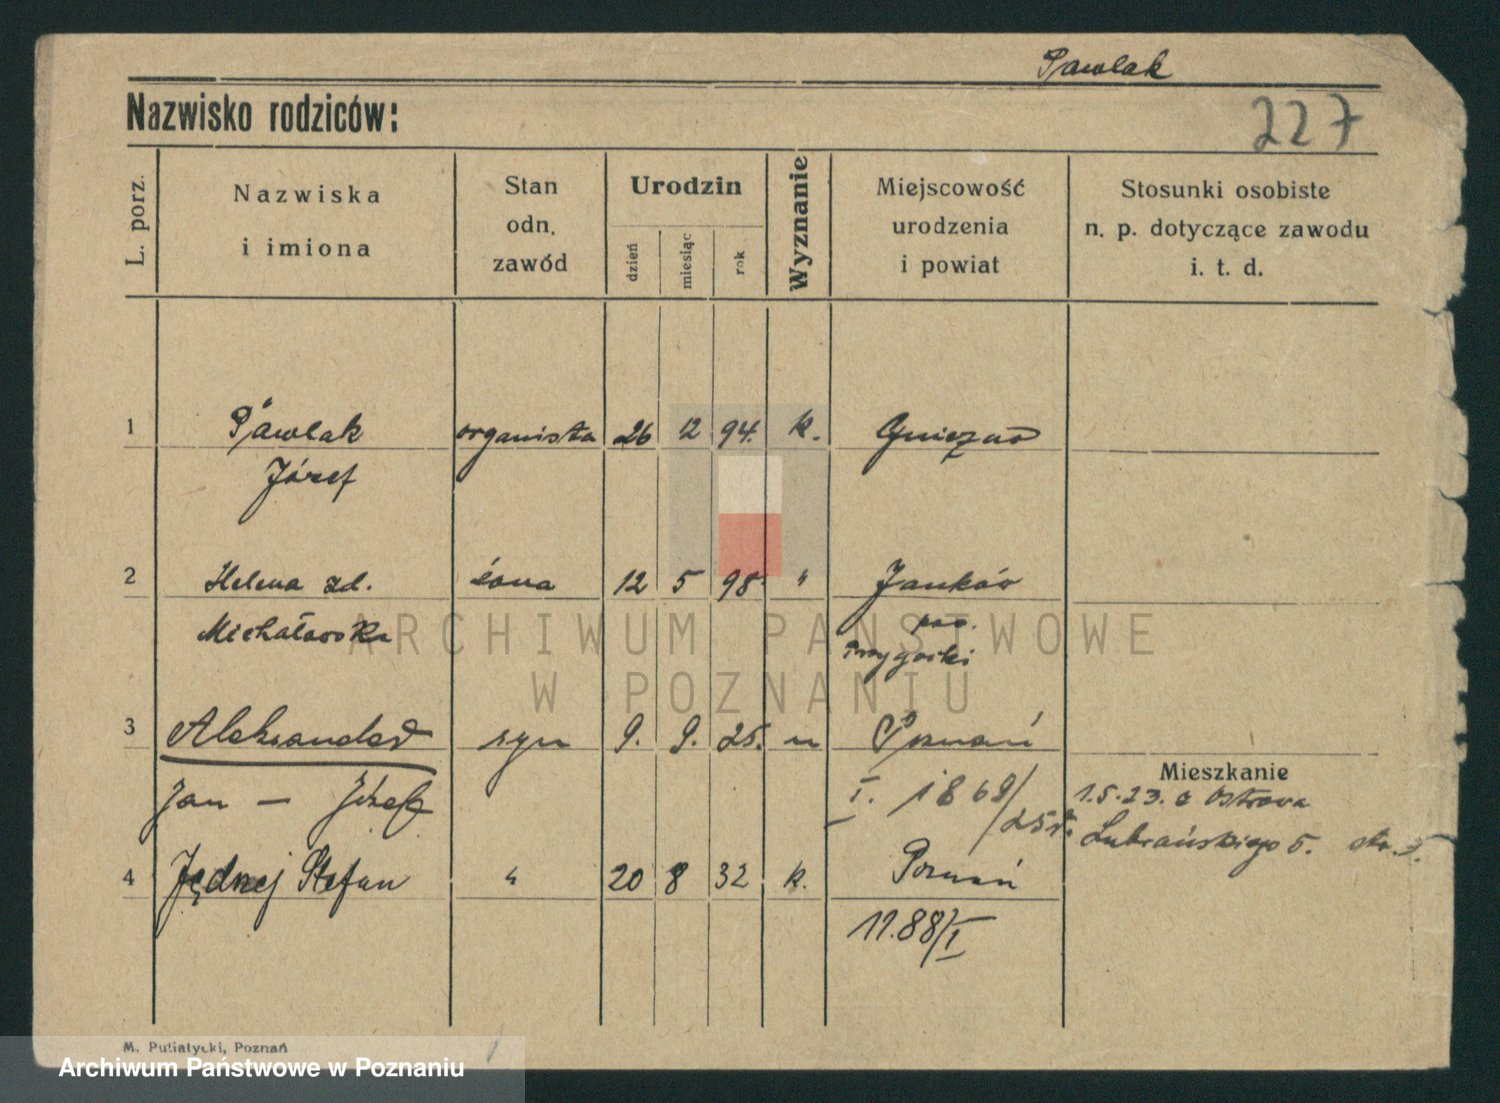 Pawlak
Nazwisko rodziców:
227
L. porz.
Nazwiska
i imiona
Stan
odn.
zawód
Urodzin
dzień
miesiąc
rok
Wyznanie
Miejscowość
urodzenia
i powiat
Stosunki osobiste
n. p. dotyczące zawodu
i. t. d.
1 Pawlak organista 26 12 94. k. Gniezno
Józef
2 Helena zd. żona 12 5 98. " Janków
Michałowska pow.
ARCHIWUM PAŃSTWOWE
W POZNANIU
3 Aleksander syn 9. 9. 25. " Poznań
Mieszkanie
Jan — Józef I. 1868/25 1.5.23. z Ostrowa
Lubrańskiego 5.
4 Jędrzej Stefan " 20 8 32 k. Poznań
11.88/I
M. Putiatycki, Poznań
Archiwum Państwowe w Poznaniu